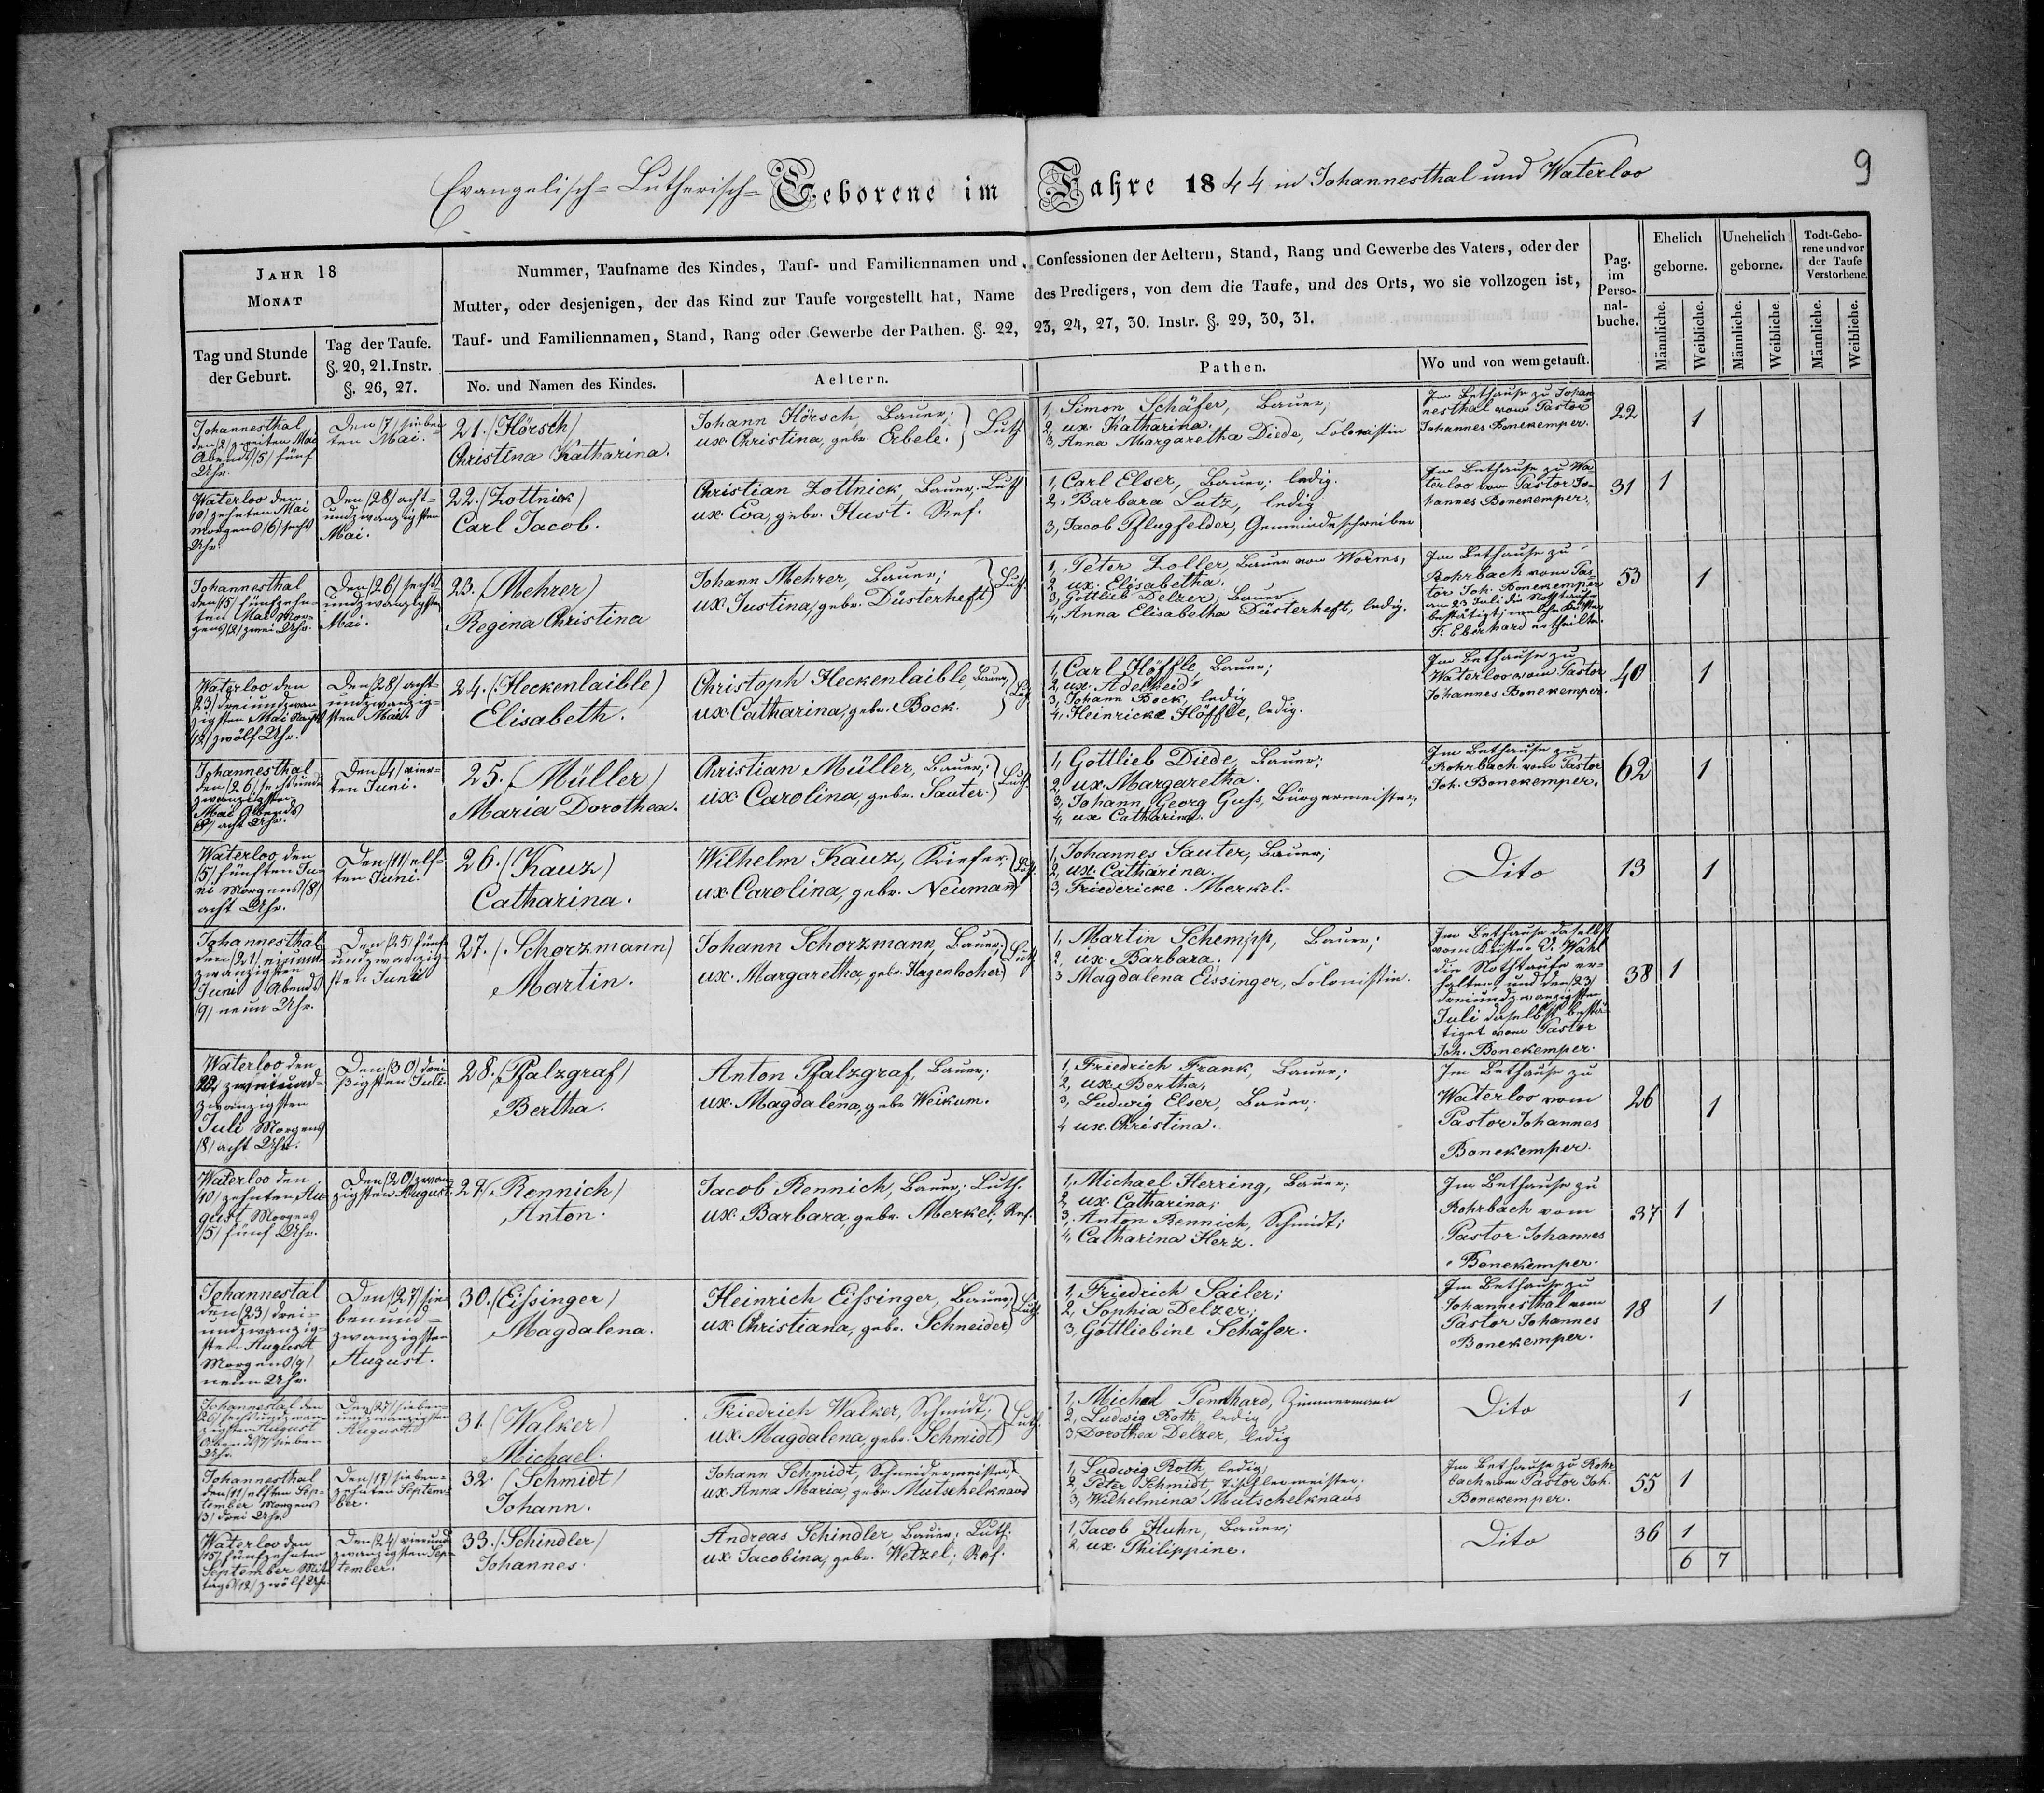 Evangelisch-Lutherisch-Geborene im Jahre 1844 in Johannesthal und Waterloo
9
JAHR 18
MONAT
Tag und Stunde
der Geburt.
Tag der Taufe.
§. 20, 21. Instr.
§. 26, 27.
Nummer, Taufname des Kindes, Tauf- und Familiennamen und Confessionen der Aeltern, Stand, Rang und Gewerbe des Vaters, oder der
Mutter, oder desjenigen, der das Kind zur Taufe vorgestellt hat, Name des Predigers, von dem die Taufe, und des Orts, wo sie vollzogen ist,
Tauf- und Familiennamen, Stand, Rang oder Gewerbe der Pathen. §. 22, 23, 24, 27, 30. Instr. §. 29, 30, 31.
No. und Namen des Kindes.
Aeltern.
Pathen.
Wo und von wem getauft.
Pag.
im
Perso-
nal-
buche.
Ehelich
geborne.
Unehelich
geborne.
Todt-Gebo-
rene und vor
der Taufe
Verstorbene.
Männliche.
Weibliche.
Männliche.
Weibliche.
Männliche.
Weibliche.
Johannesthal
den /2/ zweiten Mai
Abends /5/ fünf
Uhr.
Den /7/ sieben-
ten Mai.
21. (Hörsch)
Christina Katharina.
Johann Hörsch, Bauer;
ux. Christina, gebr. Erbele.
Luth
1, Simon Schäfer, Bauer;
2, ux. Katharina.
3, Anna Margaretha Diede, Colonistin
Im Bethause zu Johan
nesthal vom Pastor
Johannes Bonekemper.
22
1
Waterloo den
/10/ zehnten Mai
morgens /6/ sechs
Uhr.
Den /28/ acht-
undzwanzigsten
Mai.
22. (Zottnick)
Carl Jacob.
Christian Zottnick, Bauer; Luth
ux. Eva, gebr. Hust. Ref.
1, Carl Elser, Bauer; ledig.
2, Barbara Lutz, ledig
3, Jacob Pflugfelder, Gemeindeschreiber
Im Bethause zu Wa-
terloo vom Pastor Jo-
hannes Bonekemper.
31
1
Johannesthal
den /15/ fünfzehn-
ten Mai Mor-
gens /2/ zwei Uhr.
Den /26/ sechs
undzwanzigsten
Mai.
23. (Mehrer)
Regina Christina
Johann Mehrer, Bauer;
ux. Justina, gebr. Düsterheft
Luth.
1, Peter Zoller, Bauer von Worms,
2, ux. Elisabetha.
3, Gottlieb Delzer, Bauer.
4, Anna Elisabetha Düsterheft, ledig.
Im Bethause zu
Rohrbach vom Pas-
tor Joh. Bonekemper
am 23 Juli die Nothtaufe
bestätigt, welche Küster
F. Eberhard ertheilte.
53
1
Waterloo den
/23/ dreiundzwan
zigsten Mai Nachts
/12/ zwölf Uhr.
Den /28/ acht-
undzwanzig-
sten Mai.
24. (Heckenlaible)
Elisabeth.
Christoph Heckenlaible, Bauer,
ux. Catharina, gebr. Bock.
1, Carl Höffle, Bauer;
2, ux. Adelheid.
3, Johann Bock, ledig
4, Heinricke Höffle, ledig.
Im Bethause zu
Waterloo vom Pastor
Johannes Bonekemper.
40
1
Johannesthal
den /26/ sechsund
zwanzigsten
Mai Abends
/8/ acht Uhr.
Den /4/ vier-
ten Juni.
25. (Müller)
Maria Dorothea.
Christian Müller, Bauer;
ux. Carolina, gebr. Sauter.
Luth.
1, Gottlieb Diede, Bauer;
2, ux. Margaretha.
3, Johann Georg Guhs, Bürgermeister,
4, ux Catharina.
Im Bethause zu
Rohrbach vom Pastor
Joh. Bonekemper.
62
1
Waterloo den
/5/ fünften Ju-
ni Morgens /8/
acht Uhr.
Den /11/ elf-
ten Juni.
26. (Kauz)
Catharina.
Wilhelm Kauz, Kiefer;
ux. Carolina, gebr. Neumann
1, Johannes Sauter, Bauer;
2, ux. Catharina.
3, Friedericke Merkel.
Dito
13
1
Johannesthal
den /21/ einund-
zwanzigsten
Juni Abends
/9/ neun Uhr.
Den /25/ fünf-
undzwanzig-
sten Juni
27. (Schorzmann)
Martin.
Johann Schorzmann, Bauer;
ux. Margaretha, gebr. Hagenlocher
Luth
1, Martin Schempp, Bauer;
2, ux. Barbara.
3 Magdalena Eissinger, Colonistin.
Im Bethause daselbst
vom Küster D. Wahl
die Nothtaufe er-
halten, und den /23/
dreiundzwanzigsten
Juli daselbst bestä-
tiget vom Pastor
Joh. Bonekemper.
38
1
Waterloo den
/22/ zweiund-
zwanzigsten
Juli Morgens
/8/ acht Uhr.
Den /30/ drei
ßigsten Juli
28. (Pfalzgraf)
Bertha.
Anton Pfalzgraf, Bauer;
ux. Magdalena, gebr Weikum.
1, Friedrich Frank, Bauer;
2, ux. Bertha;
3, Ludwig Elser, Bauer;
4 ux. Christina.
Im Bethause zu
Waterloo vom
Pastor Johannes
Bonekemper.
26
1
Waterloo den
/10/ zehnten Au-
gust Morgens
/5/ fünf Uhr.
Den /20/ zwan
zigsten August.
29. (Rennich)
Anton.
Jacob Rennich, Bauer; Luth.
ux. Barbara, gebr. Merkel; Ref.
1, Michael Herring, Bauer;
2, ux. Catharina;
3, Anton Rennich, Schmidt;
4, Catharina Herz.
Im Bethause zu
Rohrbach vom
Pastor Johannes
Bonekemper.
37
1
Johannestal
den /23/ drei-
undzwanzig-
sten August
Morgens /9/
neun Uhr.
Den /27/ sie-
benund-
zwanzigsten
August.
30. (Eißinger)
Magdalena.
Heinrich Eißinger, Bauer;
ux. Christiana, gebr. Schneider
Luth
1, Friedrich Sailer;
2, Sophia Delzer;
3, Gottliebine Schäfer.
Im Bethause zu
Johannesthal vom
Pastor Johannes
Bonekemper.
18
1
Johannestal den
/26/ sechsundzwan-
zigsten August
Abends /7/ sieben
Uhr.
Den /27/ sieben-
undzwanzigsten
August.
31. (Walker)
Michael.
Friedrich Walker, Schmidt;
ux. Magdalena, gebr. Schmidt
Luth.
1, Michael Zimmermann
2, Ludwig Roth, ledig
3 Dorothea Delzer, ledig
Dito
1
Johannesthal
den /11/ elften Sep-
tember Morgens
/3/ drei Uhr.
Den /17/ sieben-
zehnten Septem-
ber.
32. (Schmidt)
Johann.
Johann Schmidt, Schneidermeister,
ux. Anna Maria, gebr. Mutschelknaus
1, Ludwig Roth, ledig;
2, Peter Schmidt, Tischlermeister;
3, Wilhelmina Mutschelknaus
Im Bethause zu Rohr
bach vom Pastor Joh.
Bonekemper.
55
1
Waterloo den
/15/ fünfzehnten
September Mit-
tags /12/ zwölf Uhr.
Den /24/ vierund
zwanzigsten Sep-
tember.
33. (Schindler)
Johannes.
Andreas Schindler, Bauer; Luth.
ux. Jacobina, gebr. Wetzel; Ref.
1, Jacob Huhn, Bauer;
2, ux. Philippine.
Dito
36
1
6
7